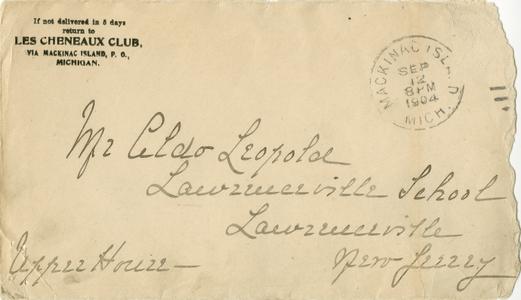 If not delivered in 5 days
return to
LES CHENEAUX CLUB,
VIA MACKINAC ISLAND, P. O.,
MICHIGAN.
MACKINAC ISLAND
SEP
12
8 PM
1904
MICH.
Mr Aldo Leopold
Lawrenceville School
Lawrenceville
Upper House — New Jersey